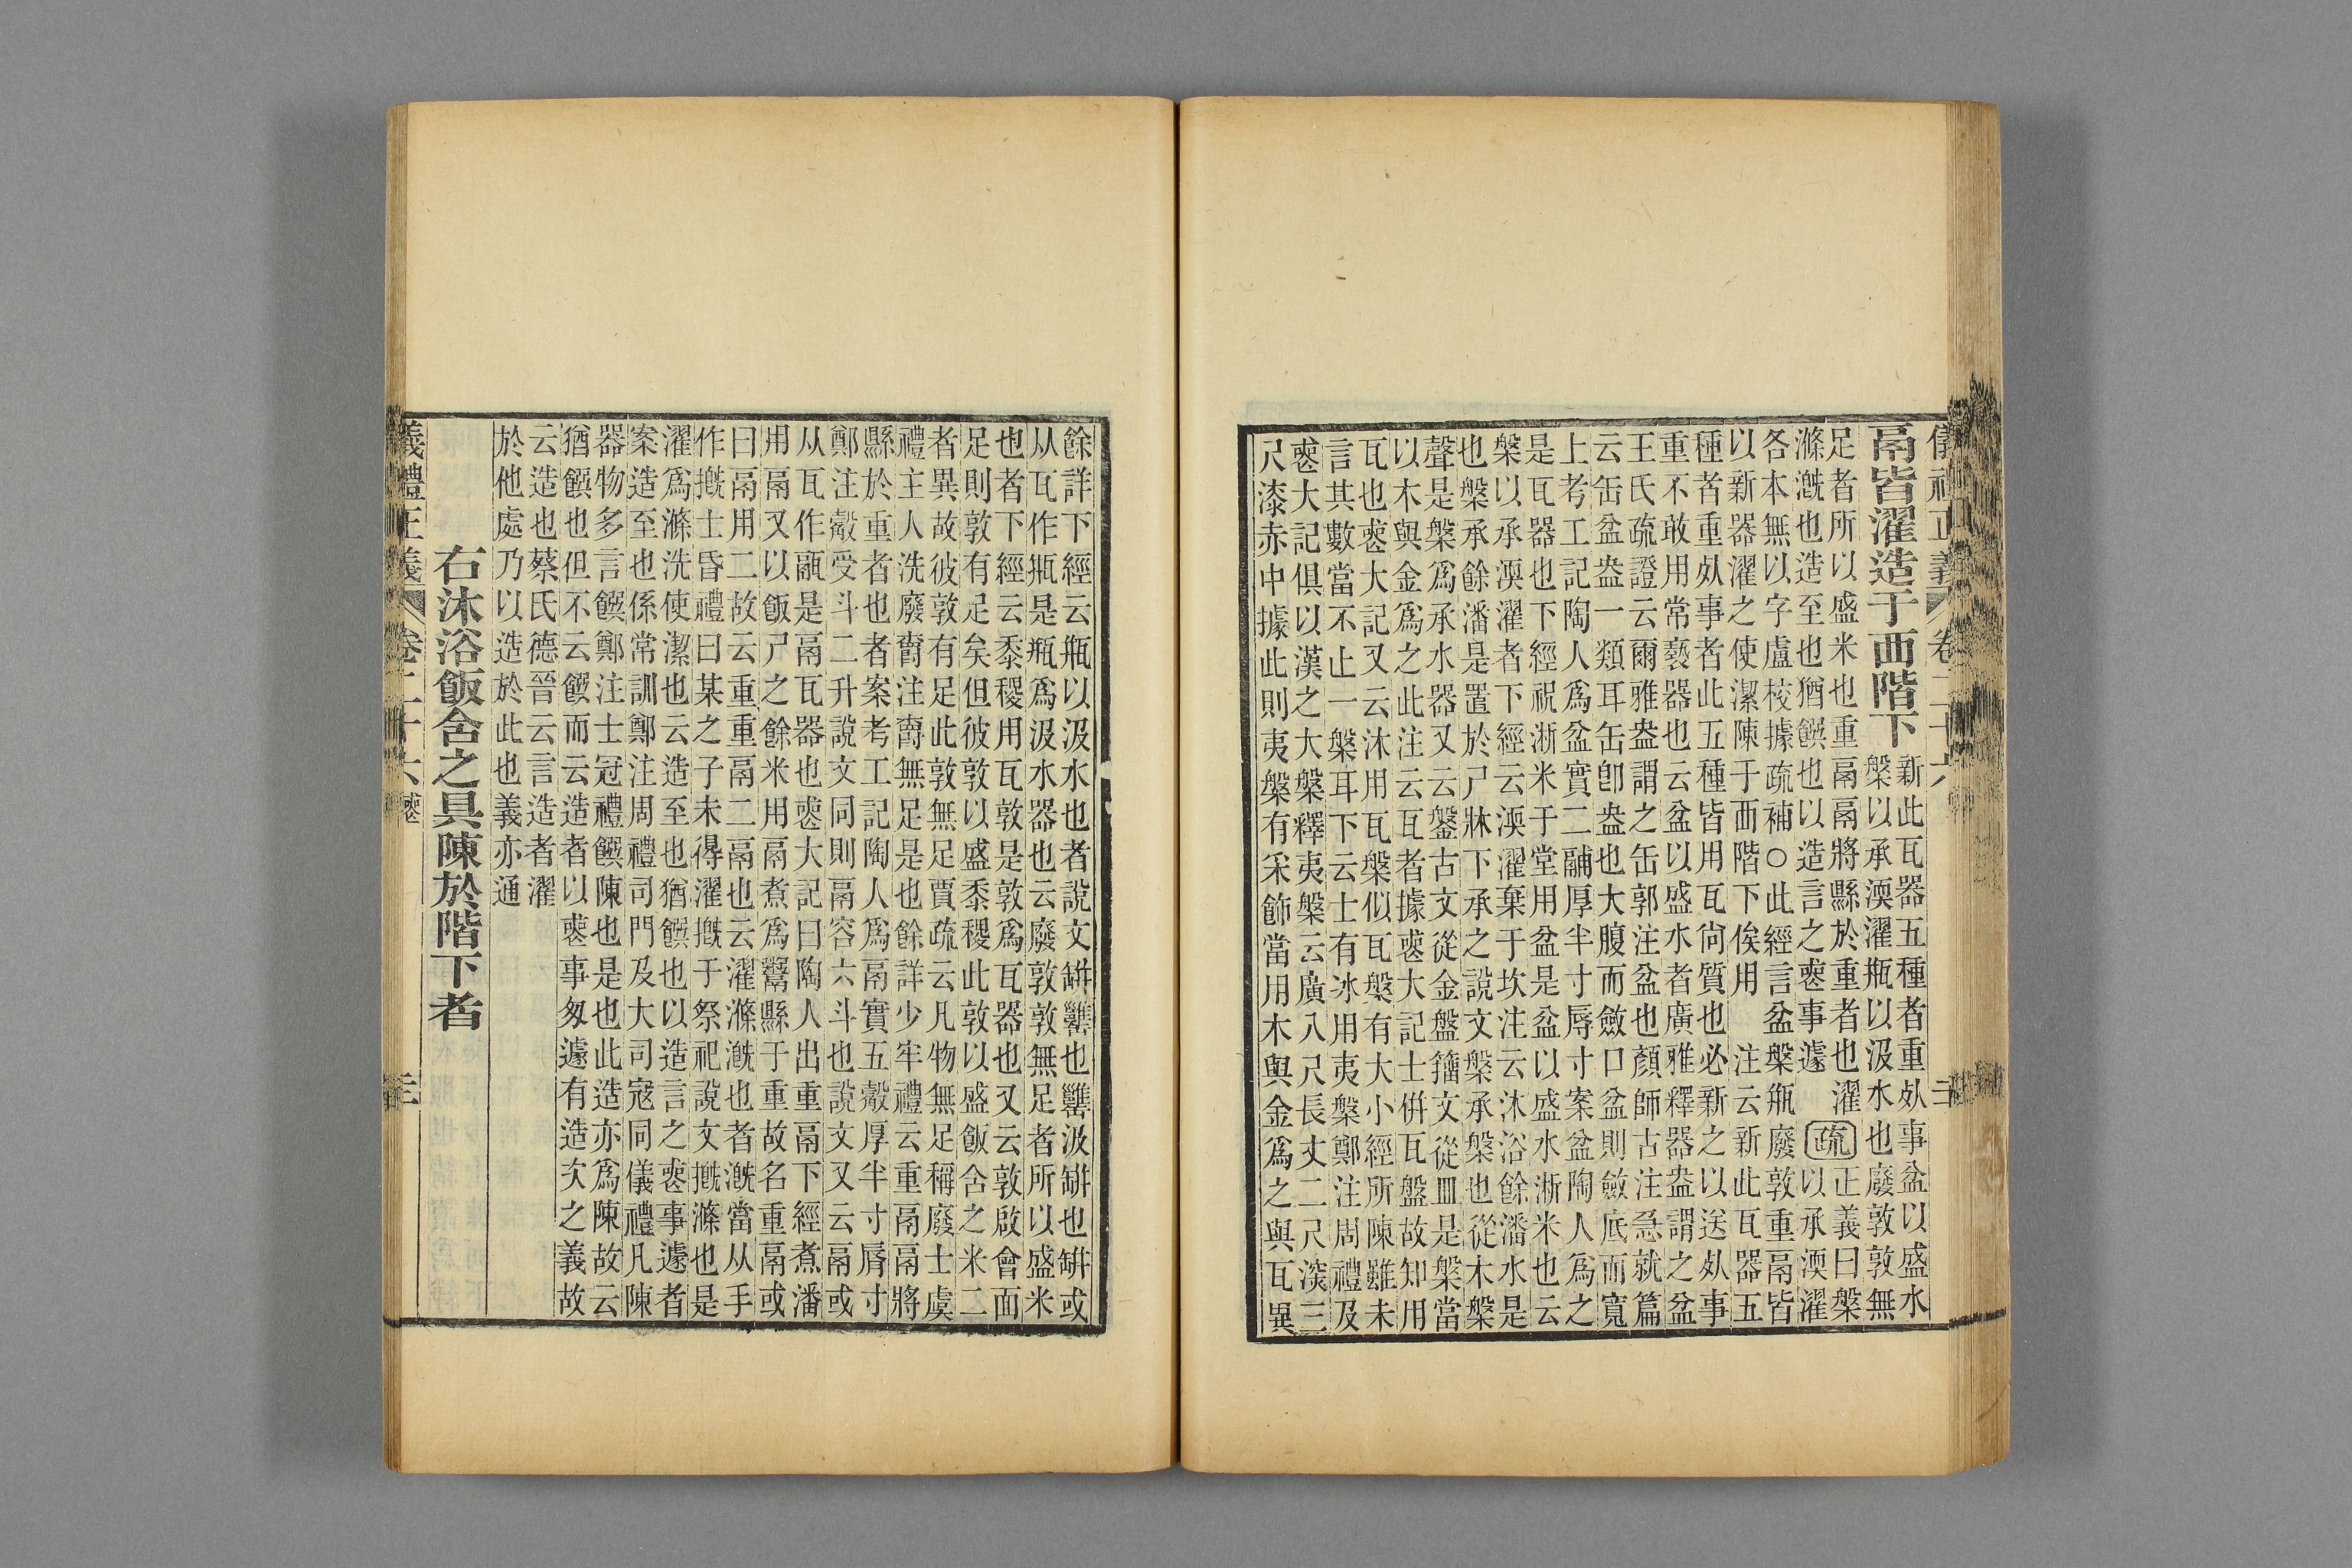 鬲皆濯造于西階下
新此瓦器五種者重死事盆以盛水
槃以承渜濯瓶以汲水也廢敦敦無
足者所以盛米也重鬲鬲將縣於重者也濯
滌溉也造至也猶饌也以造言之喪事遽
疏
正義曰槃
以承渜濯
各本無以字盧校據疏補○此經言盆槃瓶廢敦重鬲皆
以新器濯之使潔陳于西階下俟用 注云新此瓦器五
種者重死事者此五種皆用瓦尙質也必新之以送死事
重不敢用常褻器也云盆以盛水者廣雅釋器盎謂之盆
王氏疏證云爾雅盎謂之缶郭注盆也顏師古注急就篇
云缶盆盎一類耳缶卽盎也大腹而斂口盆則斂底而寬
上考工記陶人爲盆實二鬴厚半寸脣寸案盆陶人爲之
是瓦器也下經祝淅米于堂用盆是盆以盛水淅米也云
槃以承渜濯者下經云渜濯棄于坎注云沐浴餘潘水是
也槃承餘潘是置於尸牀下承之說文槃承槃也從木槃
聲是槃爲承水器又云鎜古文從金盤籒文從皿是槃當
以木與金爲之此注云瓦者據喪大記士倂瓦盤故知用
瓦也喪大記又云沐用瓦槃似瓦槃有大小經所陳雖未
言其數當不止一槃耳下云士有冰用夷槃鄭注周禮及
喪大記俱以漢之大槃釋夷槃云廣八尺長丈二尺深三
尺漆赤中據此則夷槃有采飾當用木與金爲之與瓦異
餘詳下經云瓶以汲水也者說文缾罋也罋汲缾也缾或
从瓦作瓶是瓶爲汲水器也云廢敦敦無足者所以盛米
也者下經云黍稷用瓦敦是敦爲瓦器也又云敦啟會面
足則敦有足矣但彼敦以盛黍稷此敦以盛飯含之米二
者異故彼敦有足此敦無足賈疏云凡物無足稱廢士虞
禮主人洗廢爵注爵無足是也餘詳少牢禮云重鬲鬲將
縣於重者也者案考工記陶人爲鬲實五觳厚半寸脣寸
鄭注觳受斗二升說文同則鬲容六斗也說文又云鬲或
从瓦作䰛是鬲瓦器也喪大記曰陶人出重鬲下經煮潘
用鬲又以飯尸之餘米用鬲煮爲鬻縣于重故名重鬲或
曰鬲用二故云重重鬲二鬲也云濯滌溉也者溉當从手
作摡士昏禮曰某之子未得濯摡于祭祀說文摡滌也是
濯爲滌洗使潔也云造至也猶饌也以造言之喪事遽者
案造至也係常訓鄭注周禮司門及大司寇同儀禮凡陳
器物多言饌鄭注士冠禮饌陳也是也此造亦爲陳故云
猶饌也但不云饌而云造者以喪事匆遽有造次之義故
云造也蔡氏德晉云言造者濯
於他處乃以造於此也義亦通
右沐浴飯含之具陳於階下者
義禮正義 卷二十六 喪